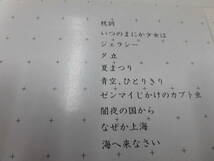 枕詞
いつのまにか少女は
ジェラシー
夕立
夏まつり
青空、ひとりきり
ゼンマイじかけのカブト虫
闇夜の国から
なぜか上海
海へ来なさい